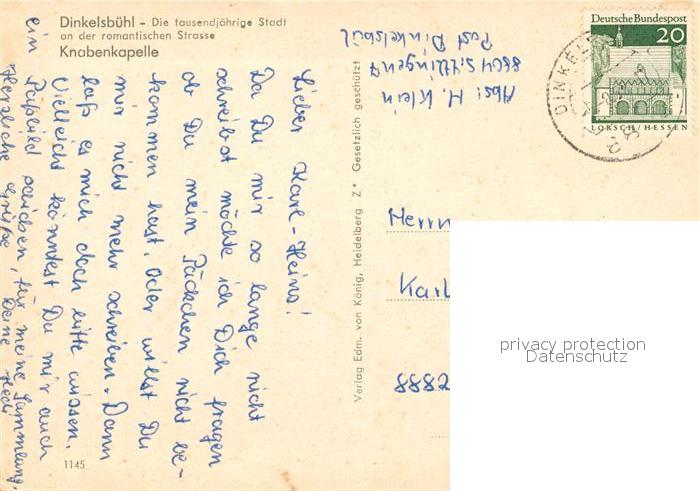 Dinkelsbühl - Die tausendjährige Stadt
an der romantischen Strasse
Knabenkapelle
Lieber Karl-Heinz!
Da Du mir so lange nicht
schreibst möchte ich Dich fragen
ob Du mein Päckchen nicht be-
kommen hast. Oder willst Du
mir nicht mehr schreiben. Dann
laß es mich doch bitte wissen.
Vielleicht könntest Du mir auch
ein Paßbild schicken, für meine Sammlung.
Herzliche Grüße Deine Hedi
1145
Verlag Edm. von König, Heidelberg Z* Gesetzlich geschützt
Abs: H. Klein
Post Dinkelsbül
Deutsche Bundespost
20
LORSCH/HESSEN
DINKELS
Herrn
Karl
8882
privacy protection
Datenschutz